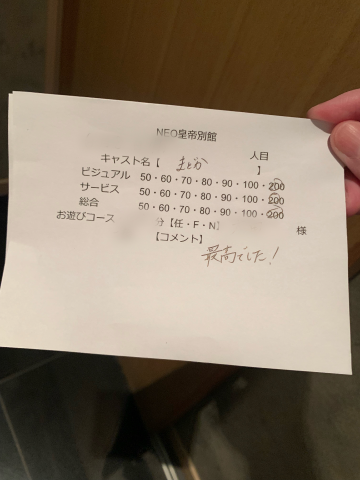 NEO皇帝別館
人目
キャスト名【 まどか 】
ビジュアル 50・60・70・80・90・100・200
サービス 50・60・70・80・90・100・200
総合 50・60・70・80・90・100・200
お遊びコース 分【任・F・N】 様
【コメント】
最高でした!